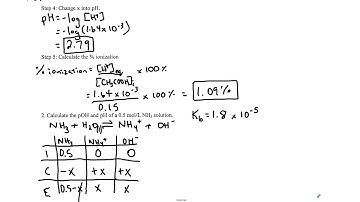 Step 4: Change x into pH.
pH = -log [H⁺]
= -log (1.64 x 10⁻³)
= 2.79
Step 5: Calculate the % ionization
% ionization = [H⁺]eq / [CH₃COOH]i x 100%
= 1.64 x 10⁻³ / 0.15 x 100% = 1.09%
2. Calculate the pOH and pH of a 0.5 mol/L NH₃ solution.
Kb = 1.8 x 10⁻⁵
NH₃ + H₂O(l) ⇌ NH₄⁺ + OH⁻
NH₃ NH₄⁺ OH⁻
I 0.5 0 0
C -x +x +x
E 0.5-x x x